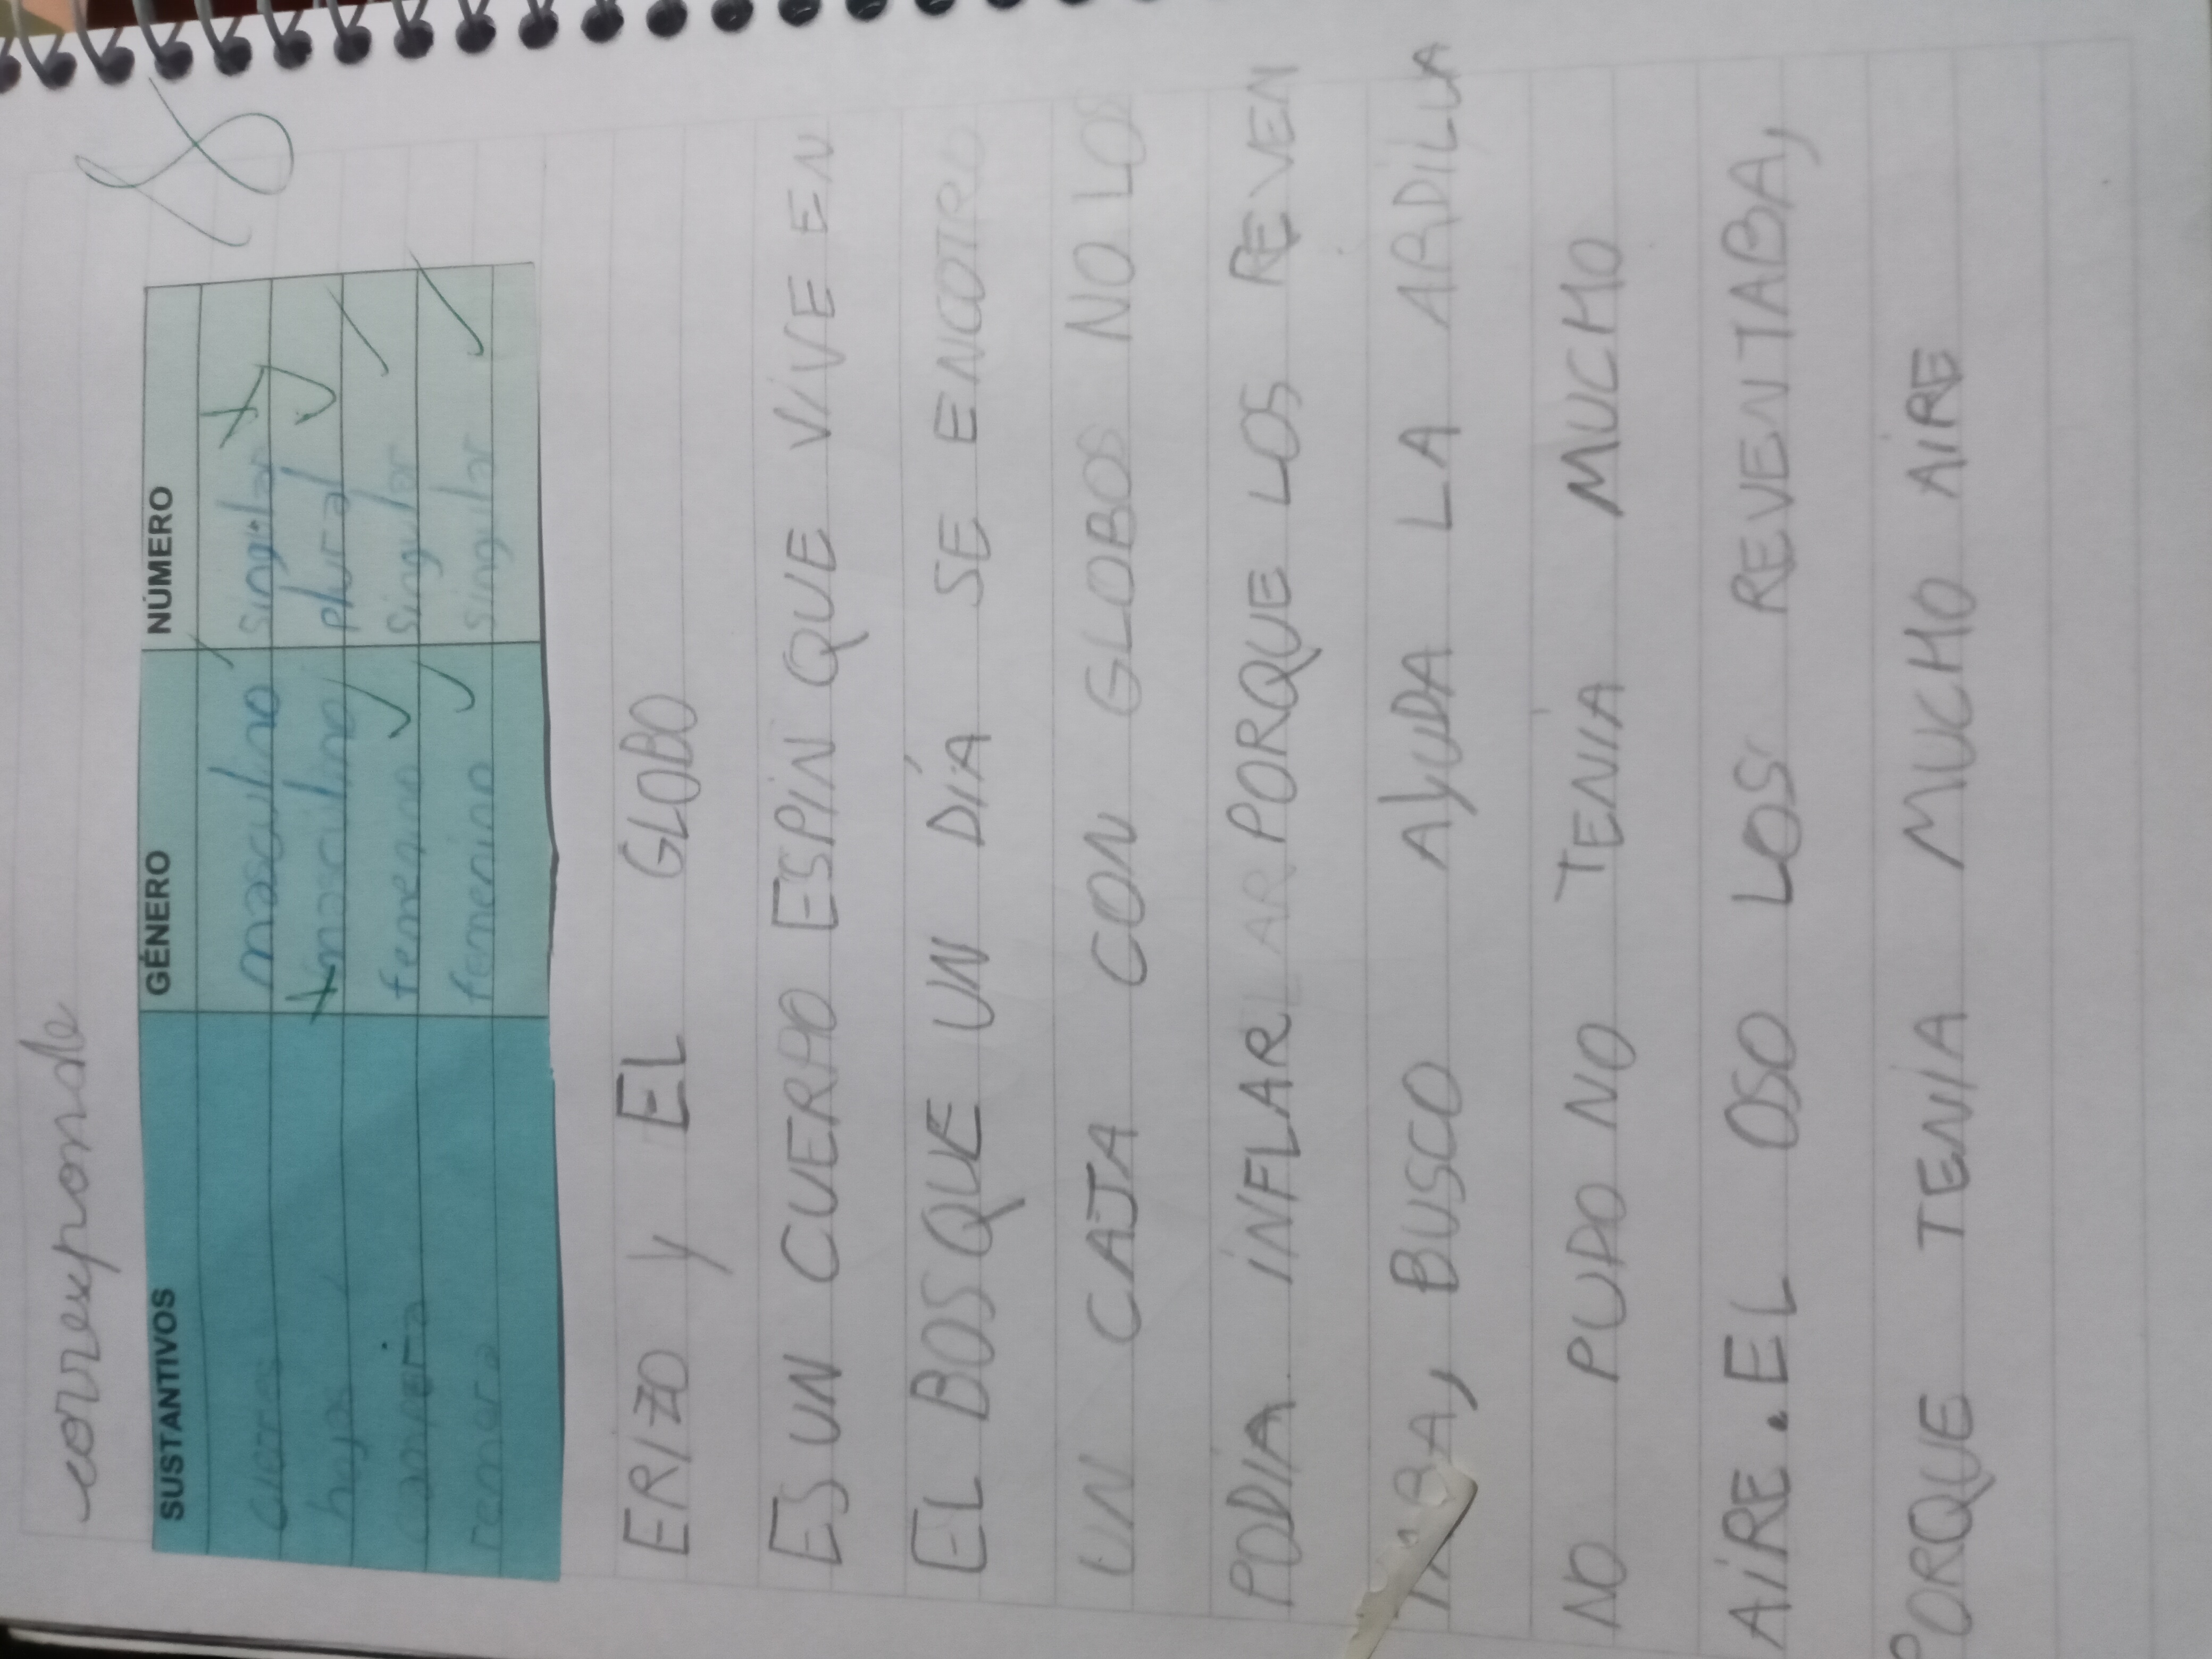 corresponde
8
SUSTANTIVOS GÉNERO NÚMERO
masculino singular
hojas masculino plural
femenino singular
femenino singular
ERIZO Y EL GLOBO
ES UN CUERPO ESPIN QUE VIVE EN
EL BOSQUE UN DÍA SE ENCOTRO
UN CAJA CON GLOBOS NO LOS
PODIA INFLAR LAR PORQUE LOS REVEN
TABA, BUSCO AYUDA LA ARDILLA
NO PUDO NO TENIA MUCHO
AIRE. EL OSO LOS REVENTABA,
PORQUE TENIA MUCHO AIRE